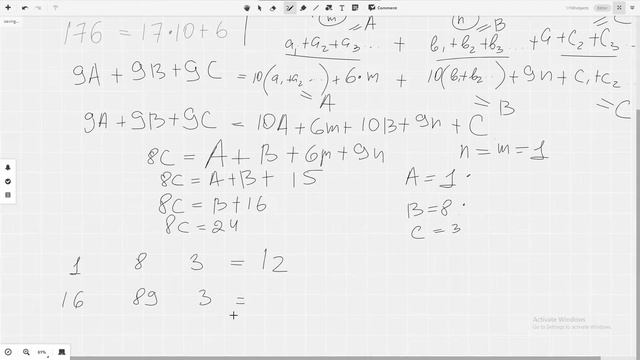 saving...
Comment
Editor
176 = 17·10+6 |
m = A n = B = C
a₁+a₂+a₃... + b₁+b₂+b₃... + c₁+c₂+c₃...
9A+9B+9C = 10(a₁+a₂...)+6·m + 10(b₁+b₂...)+9n + c₁+c₂
= A = B = C
9A+9B+9C = 10A+6m+10B+9n+C
8C = A+B+6m+9n n=m=1
8C = A+B+ 15 A=1·
8C = B+16 B=8·
8C = 24 C=3
1 8 3 = 12
16 89 3 =
Activate Windows
Go to Settings to activate Windows.
81%